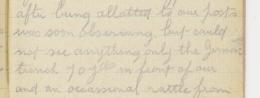 after being allotted to our posts
was soon observing, but could
not see anything only the German
trench 70 yds in front of our
and an occassional rattle from